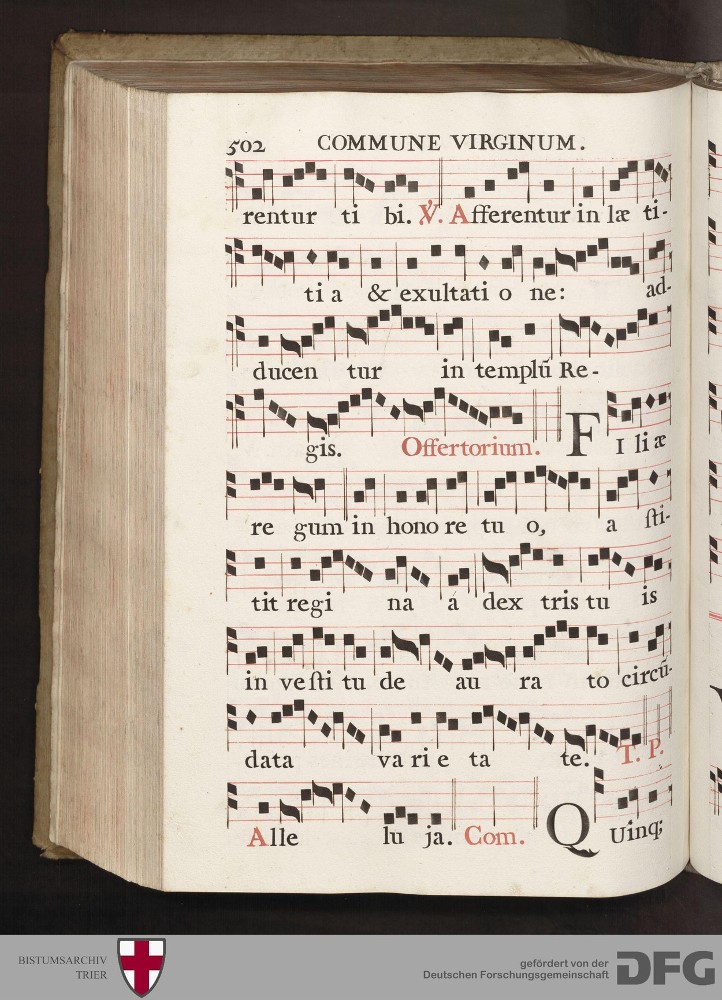 502 COMMUNE VIRGINUM.
rentur ti bi. ℣. Afferentur in læ ti-
ti a & exultati o ne: ad-
ducen tur in templũ Re-
gis. Offertorium. FI li æ
re gum in hono re tu o, a ſti-
tit regi na á dex tris tu is
in ve ſti tu de au ra to circũ-
data va ri e ta te. T. P.
Alle lu ja. Com. QUinq;
BISTUMSARCHIV
TRIER
gefördert von der
Deutschen Forschungsgemeinschaft
DFG